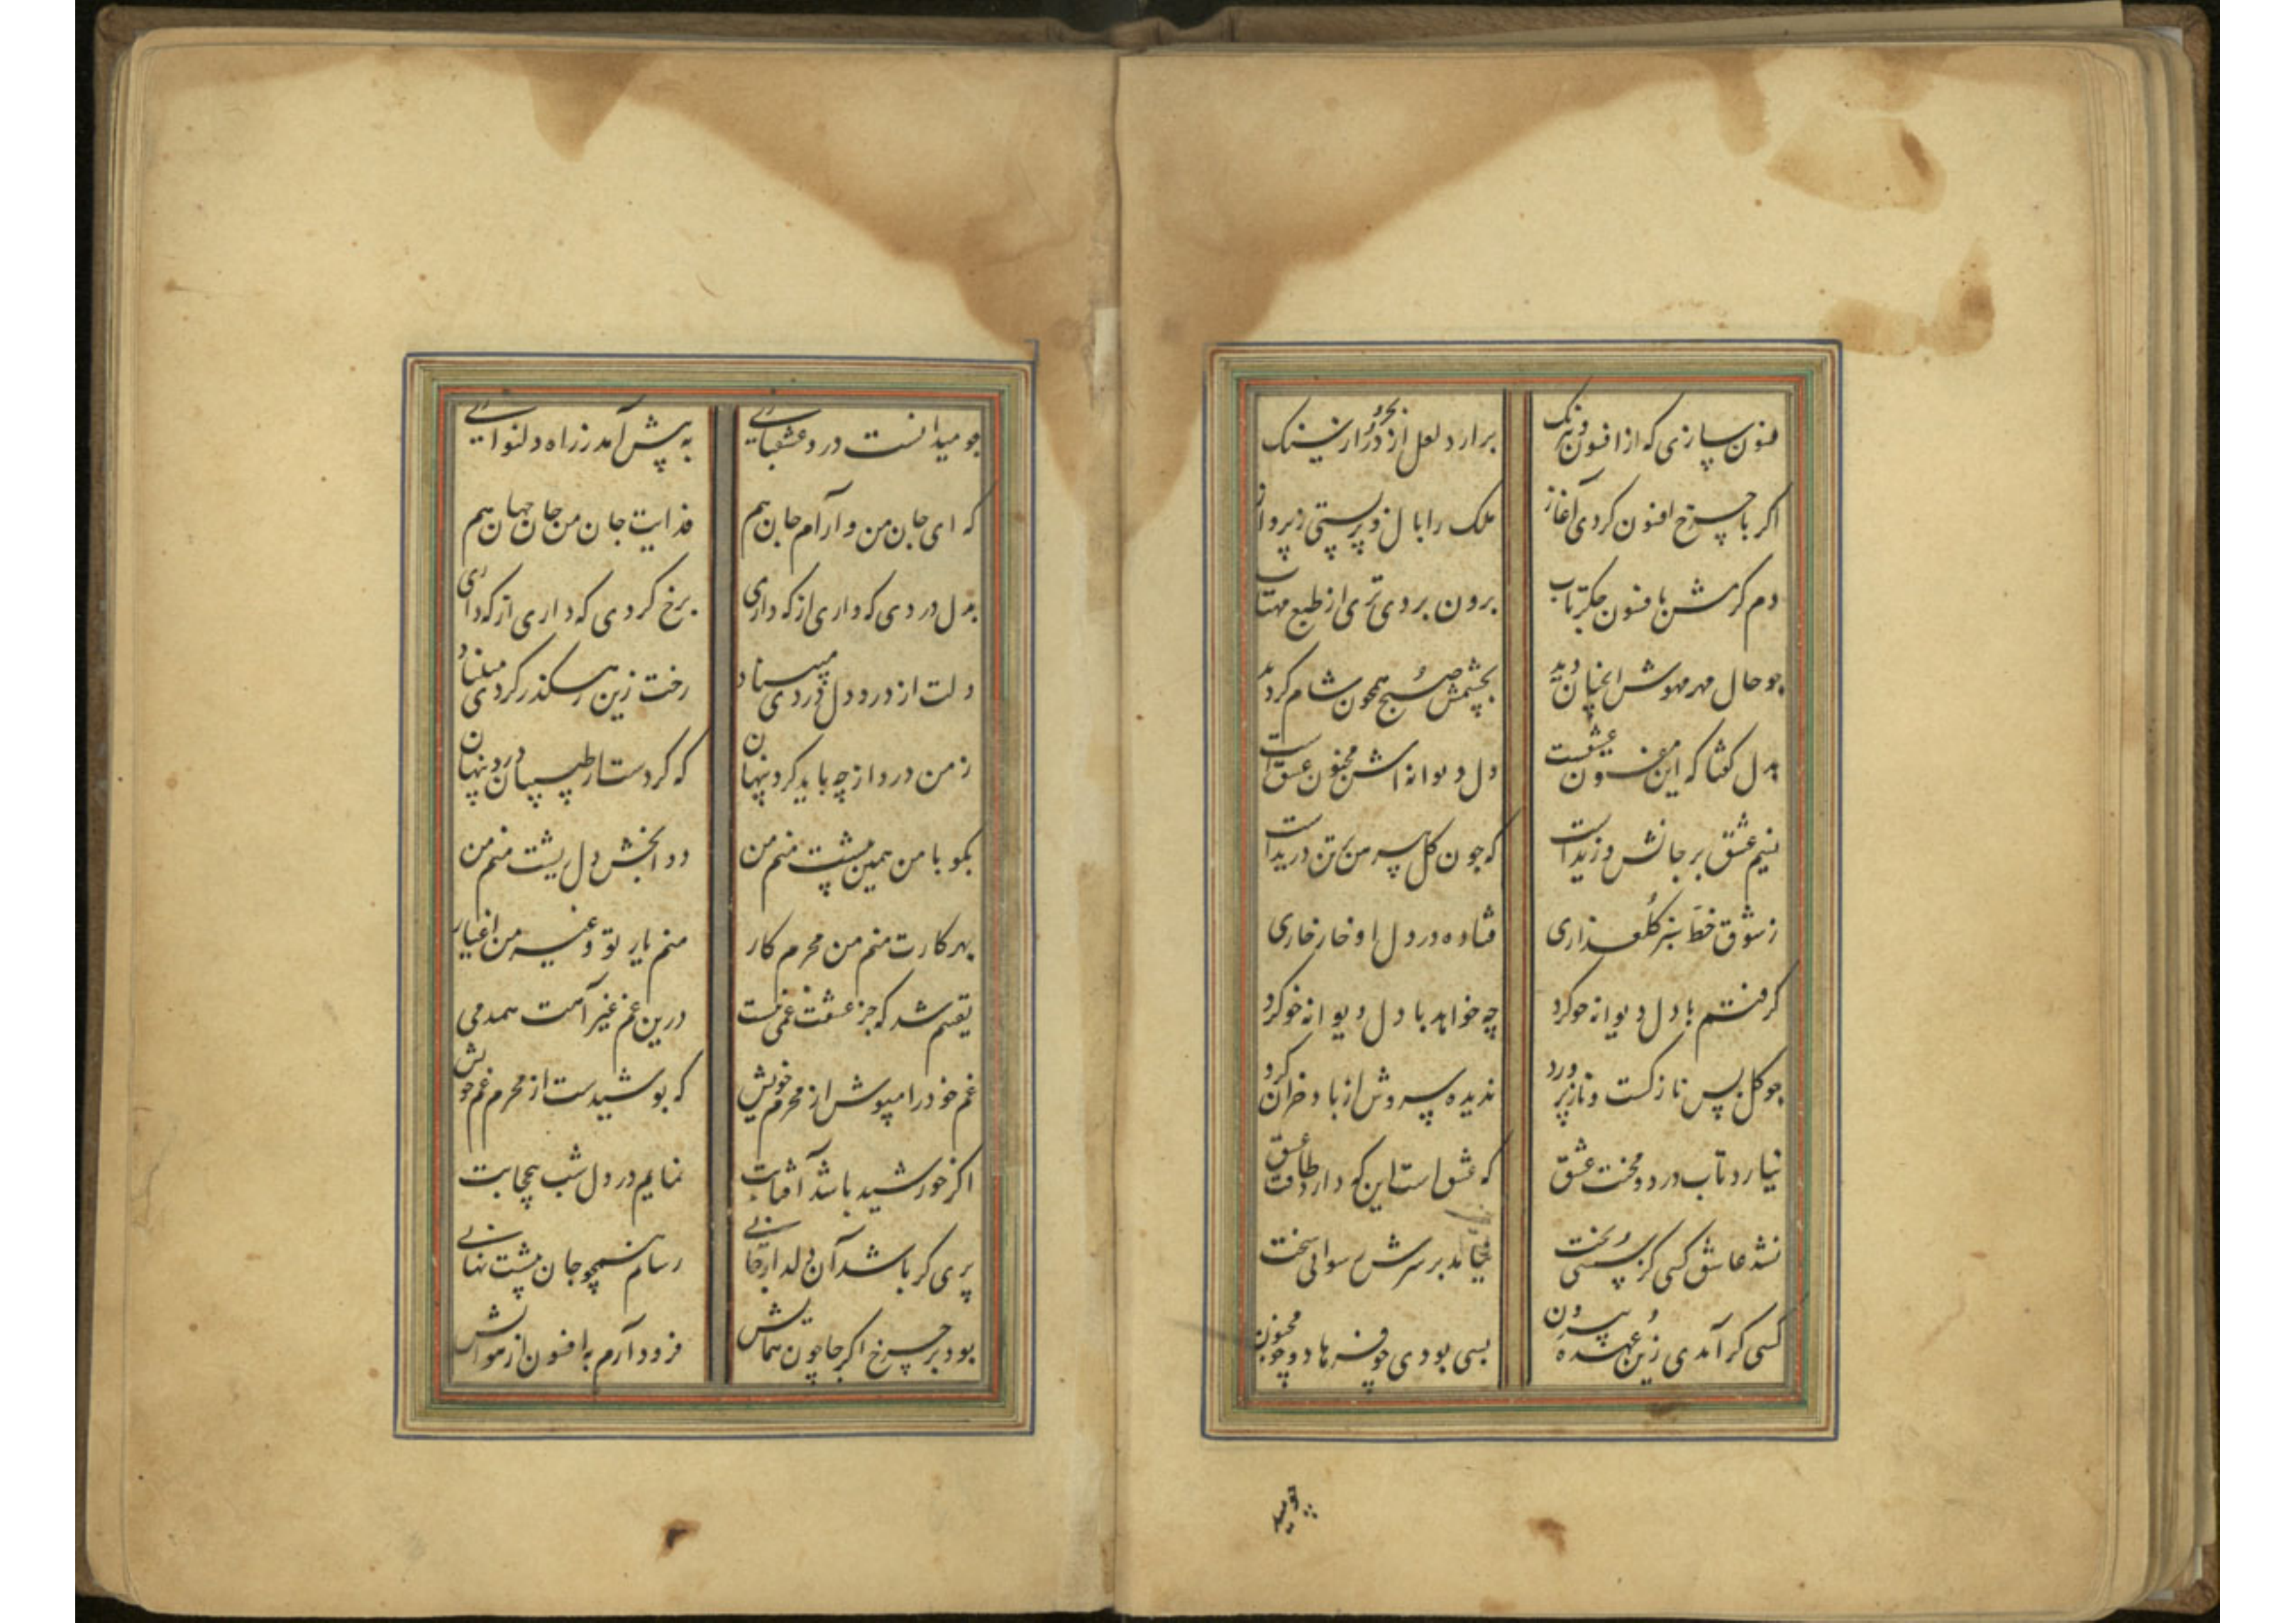 فسون سازی که از افسون و نیرنک برارد لعل از در و از سنک
اکر با چرخ افسون کردی آغاز ملک را بال و پر بستی ز پرواز
دم کرمش بافسون جکرتاب برون بردی تری از طبع مهتاب
جو حال مهر مهوش انچنان دید بچشمش صبح همچون شام کردید
بدل کفتا که این افسون عشقست دل دیوانه اش مجنون عشق است
نسیم عشق بر جانش وزیداست که جون کل پیرهن بر تن دریداست
ز شوق خط سبز کلعذاری فتاده در دل او خار خاری
کرفتم با دل دیوانه خو کرد چه خواهد با دل دیوانه خو کرد
جو کل بس نازکست و نازپرورد ندیده سروش از باد خزان کرد
نیارد تاب درد و محنت عشق که عشق است این که دارد طاقت عشق
نشد عاشق کسی کز سستی بخت نیامد بر سرش سودای سخت
کسی کر آمدی زین عهده بیرون بسی بودی چو فرهاد و چو مجنون
جو میدانست درد عشقبازی به پیش آمد ز راه دلنوازی
که ای جان من و آرام جان هم فدایت جان من جان جهان هم
بدل دردی که داری از که داری برخ کردی که داری از که داری
دلت از درد دل دردی مبیناد رخت زین رهکذر کردی مبیناد
ز من درد از چه باید کرد پنهان که کردست از طبیبان درد پنهان
بکو با من همین پشت منم من دوا بخش دل ریشت منم من
بهر کارت منم من محرم کار منم یار تو و غیر من اغیار
یقینم شد که جز عشقت غمی نیست درین غم غیر آهت همدمی
غم خود را مپوش از محرم خویش که پوشیدست از محرم غم خویش
اکر خورشید باشد آفتابت نمایم در دل شب بیحجابت
پری کر باشد آن دلدار جانی رسانم همچو جان پیشت نهانی
بود بر چرخ اکر جا چون همایش فرود آرم به افسون از هوایش